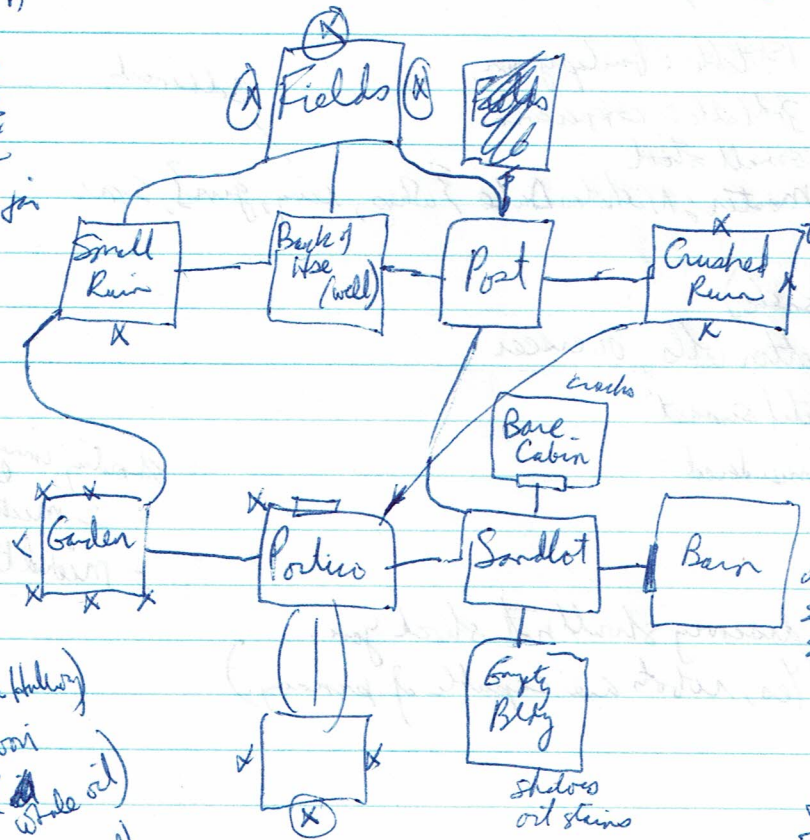 Fields
Small
Ruin
Back of
Hse
(well)
Post
Crushed
Ruin
cracks
Bare
Cabin
Garden
Portico
Sandlot
Barn
Empty
Bldg
oil stains
whale oil)